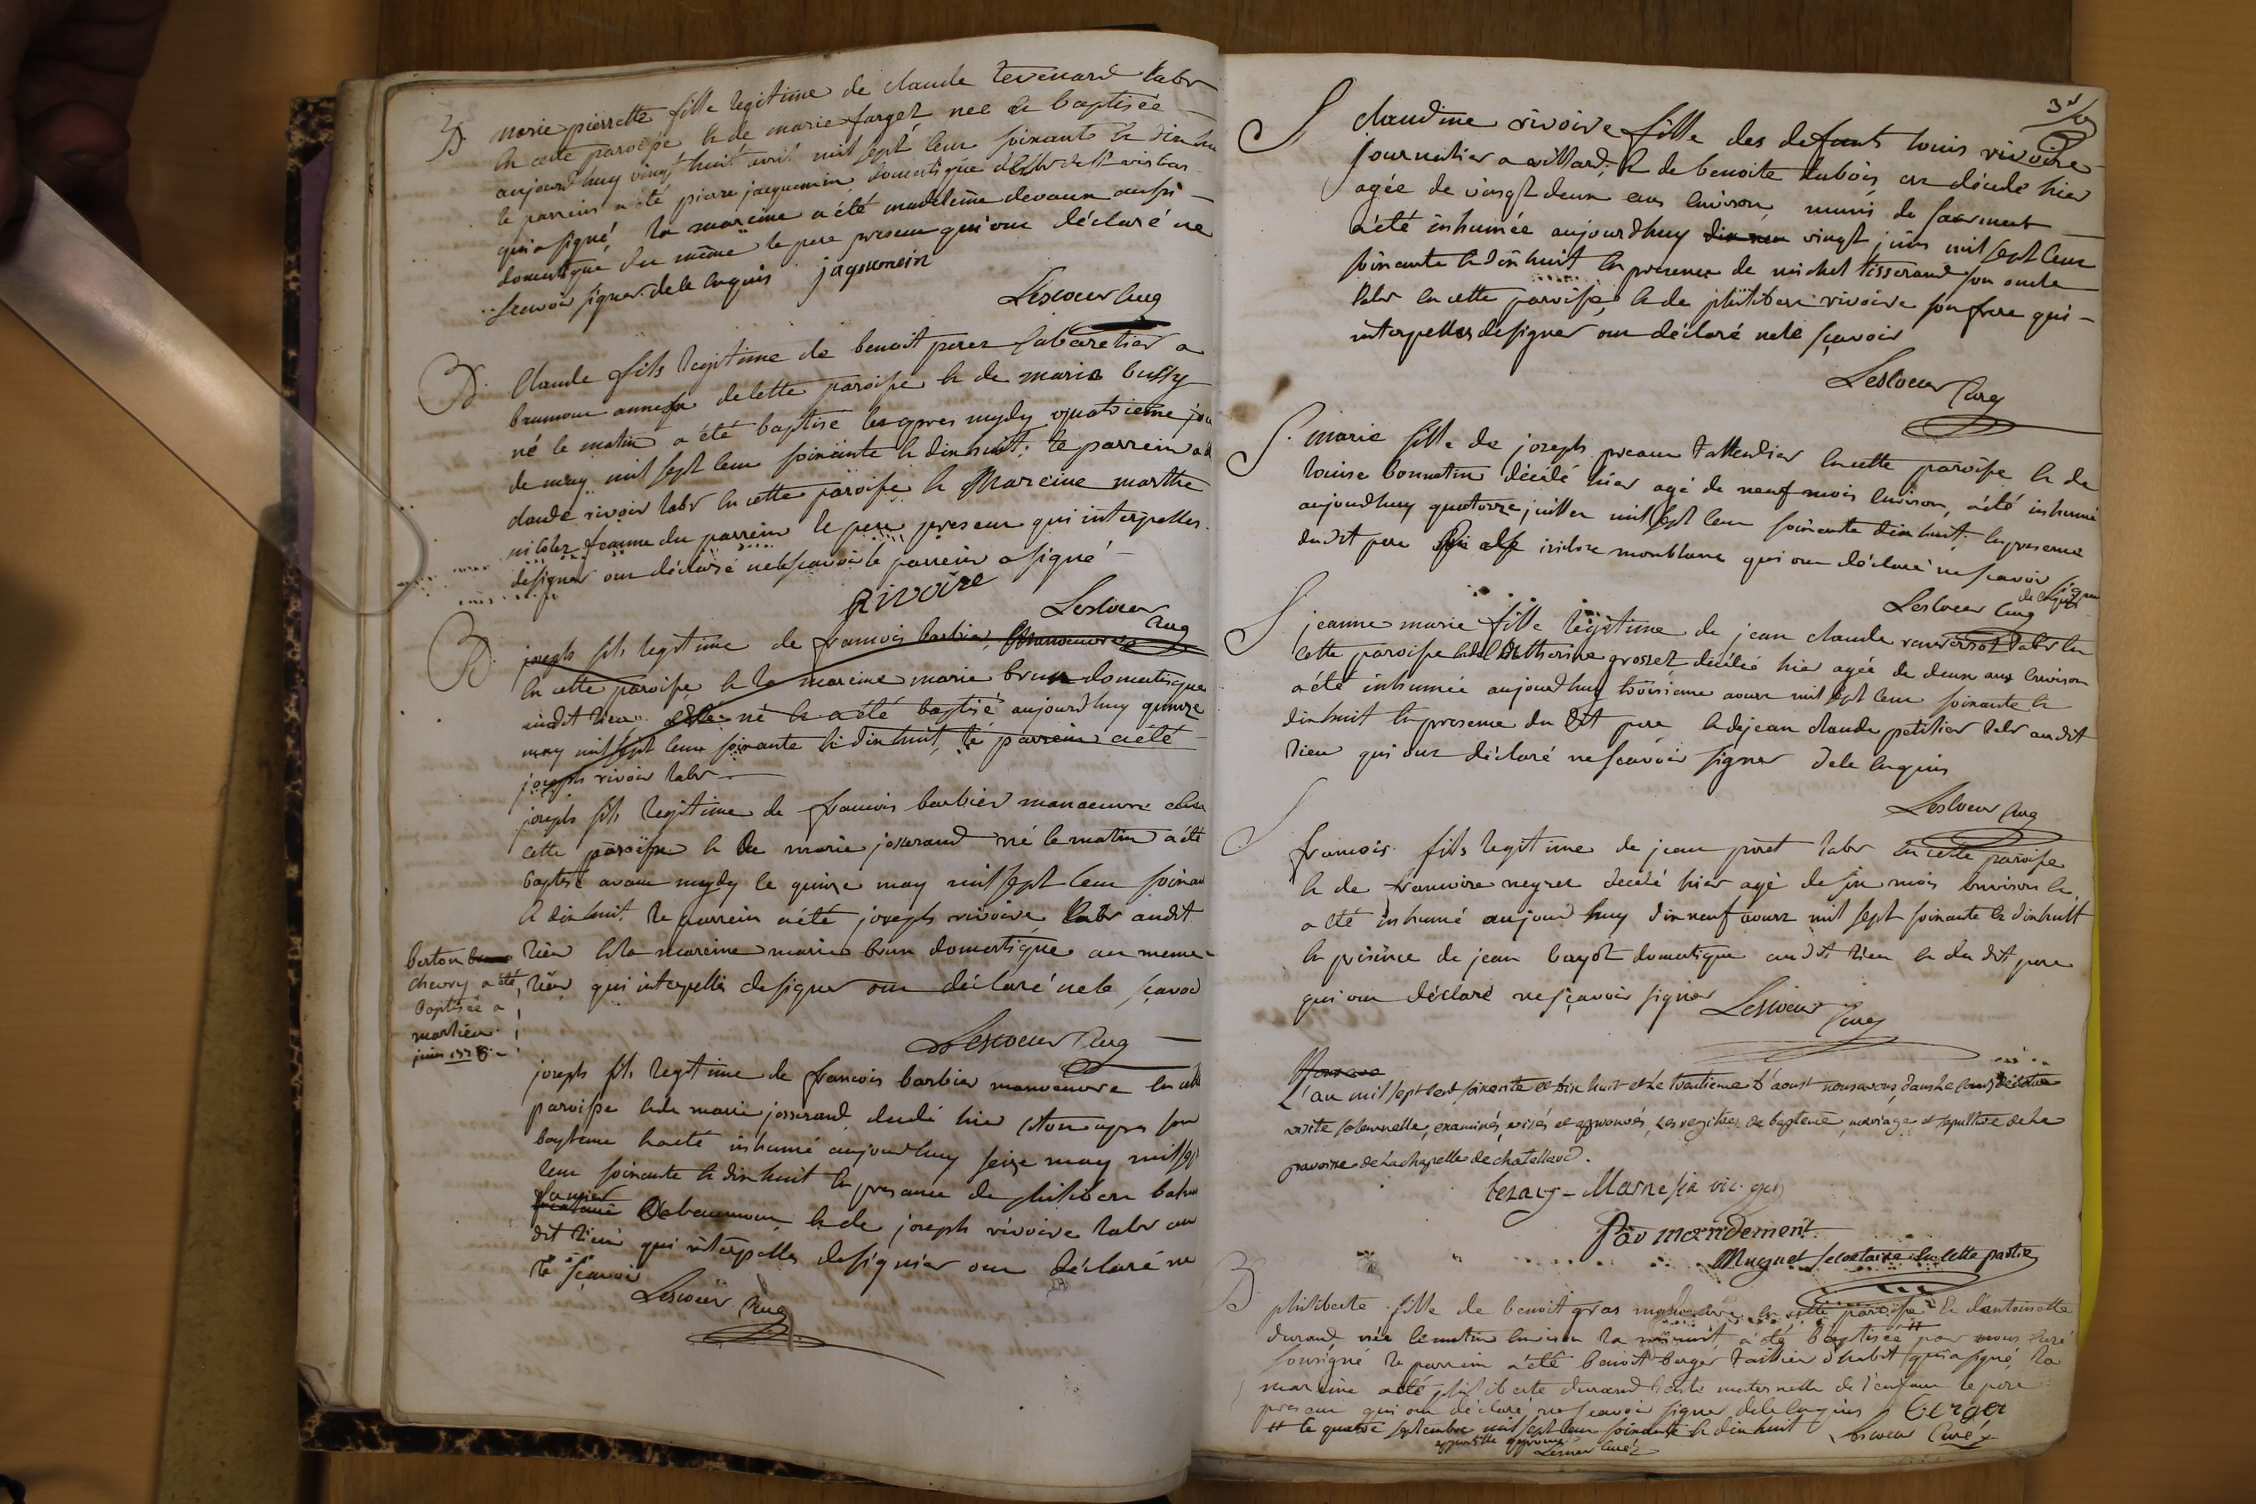 B. marie pierrette fille legitime de claude tevenard labr
en cette paroisse & de marie farget nee & baptisée
aujourdhuy vingt huit avril mil sept cent soixante & dix huit
le parrein a été pierre jaquemin domestique
qui a signé, la mareine a été madeleine devaux aussi
domestique du même le pere present qui ont déclaré ne
scavoir signer de ce enquis jaquemein
Lescoeur Curé
B. Claude fils legitime de benoit perez cabaretier a
beaumont annexe de cette paroisse & de marie bussy
né le matin a été baptise les apres mydy quatrieme jour
de may mil sept cent soixante & dix huit; le parrein a été
claude rivoir labr en cette paroisse & Mareine marthe
nicolez femme du parrein le pere present qui interpelles
de signer ont déclaré ne le scavoir le parrein a signé
Rivoire
Lescoeur Curé
B. joseph fils legitime de francois barbier manoeuvre
en cette paroisse & la mareine marie brun domestique
audit lieu né & a été baptisé aujourdhuy quinze
may mil sept cent soixante & dix huit, le parrein a été
joseph rivoir labr
joseph fils legitime de francois barbier manoeuvre en
cette paroisse & de marie josserand né le matin a été
baptisé avant mydy le quinze may mil sept cent soixan
& dix huit le parrein a été joseph rivoire labr audit
lieu & la mareine marie brun domestique au meme
lieu qui interpelles de signer ont déclaré ne le sçavoir
Lescoeur Curé
berton
chevry a été
baptisée a
marlieu
juin 1778
joseph fils legitime de francois barbier manoeuvre en cette
paroisse & de marie josserand decedé hier sitot apres son
bapteme & a été inhumé aujourdhuy seize may mil sept
cent soixante & dix huit en presance de philibert
de beaumont & de joseph rivoire labr au
dit lieu qui interpelles de signer ont déclaré ne
le sçavoir
Lescoeur Curé
S claudine rivoire fille des defunts louis rivoire
journalier a villard, & de benoite dubois, est décedé hier
agée de vingt deux ans environ, munis de sacrement
a été inhumée aujourdhuy dix neu vingt juin mil sept cent
soixante & dix huit en presence de michel tisserand son oncle
labr en cette paroisse, & de philibert rivoire son frere qui
interpelles de signer ont déclaré ne le sçavoir
Lescoeur Curé
S. marie fille de joseph preaux tattendier en cette paroisse & de
louise bonnetin décédé hier agé de neuf mois environ, a été inhumé
aujourdhuy quatorze juillet mil sept cent soixante dix huit, en presence
dudit pere isidore montblanc qui ont déclaré ne scavoir signer
de ce enquis
Lescoeur Curé
S jeanne marie fille legitime de jean claude labr en
cette paroisse & de Catherine grosset decédé hier agée de deux ans environ
a été inhumée aujourdhuy troisieme aoust mil sept cent soixante &
dix huit en presence du dit pere & de jean claude petitier labr audit
lieu qui ont déclaré ne scavoir signer de ce enquis
Lescoeur Curé
S francois fils legitime de jean piret labr en cette paroisse
& de francoise neyret decedé hier agé de six mois environ &
a été inhumé aujourdhuy dix neuf aoust mil sept soixante & dix huit
en présence de jean bayot domestique audit lieu & du dit pere
qui ont déclaré ne sçavoir signer Lescoeur Curé
L'an mil sept cent soixante et dix huit et le trentieme d'aoust nous avons, dans le cours de notre
visite solemnelle, examinés, visés et approuvés, les registres de baptême, mariage et sepulture de la
paroisse de la chapelle de chatellard.
vic. gen
Par mandement
Mugnet secretaire en cette partie
B philiberte fille de benoit gras manoeuvre en cette paroisse & d'antoinette
durand née le matin environ la minuit a été baptisée # par nous curé
soussigné le parrein a été benoit berger taillier d'habit qui a signé, la
mareine a été philiberte durand tante maternelle de l'enfant le pere
present qui ont déclaré ne scavoir signer de ce enquis Berger
# le quatre septembre mil sept cent soixante & dix huit Lescoeur Curé
apostille approuvé
Lescoeur Curé